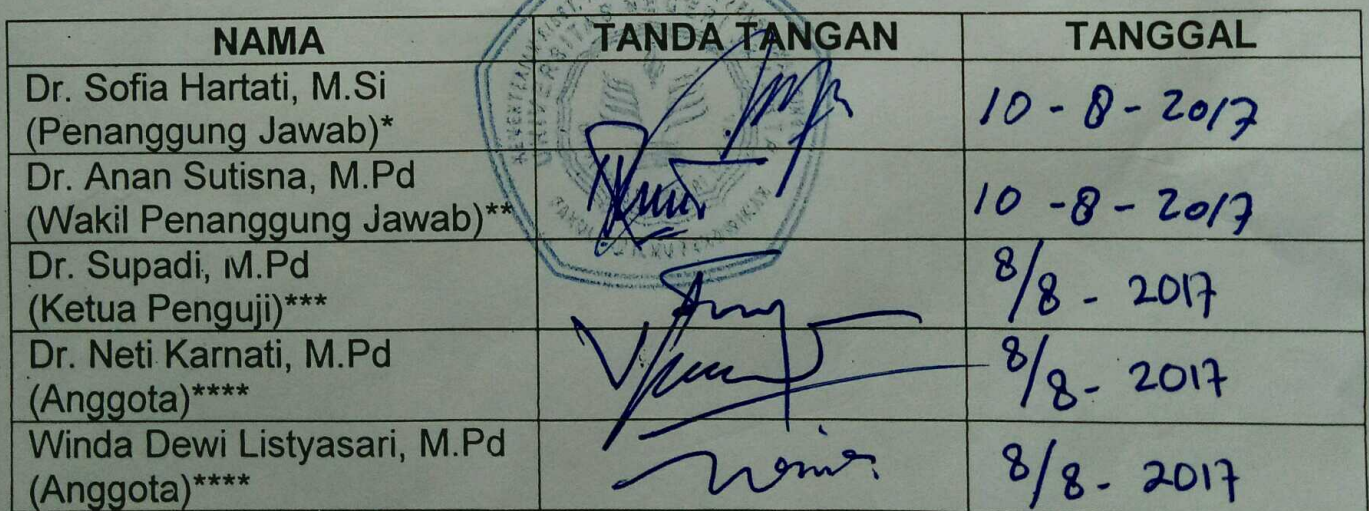 NAMA TANDA TANGAN TANGGAL
Dr. Sofia Hartati, M.Si
(Penanggung Jawab)* 10 - 8 - 2017
Dr. Anan Sutisna, M.Pd
(Wakil Penanggung Jawab)** 10 - 8 - 2017
Dr. Supadi, M.Pd
(Ketua Penguji)*** 8/8 - 2017
Dr. Neti Karnati, M.Pd
(Anggota)**** 8/8 - 2017
Winda Dewi Listyasari, M.Pd
(Anggota)**** 8/8 - 2017